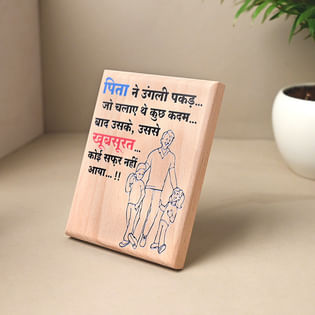 पिता ने उंगली पकड़...
जो चलाए थे कुछ कदम...
बाद उसके, उससे
खूबसूरत...
कोई सफ़र नहीं
आया...!!